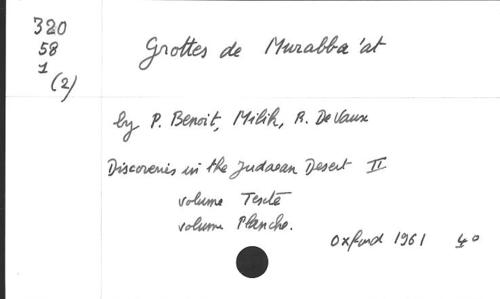 320
58
1
(2)
Grottes de Murabba'at
by P. Benoit, Milik, R. De Vaux
Discoveries in the Judaean Desert II
volume Texte
volume Planche.
Oxford 1961 4°